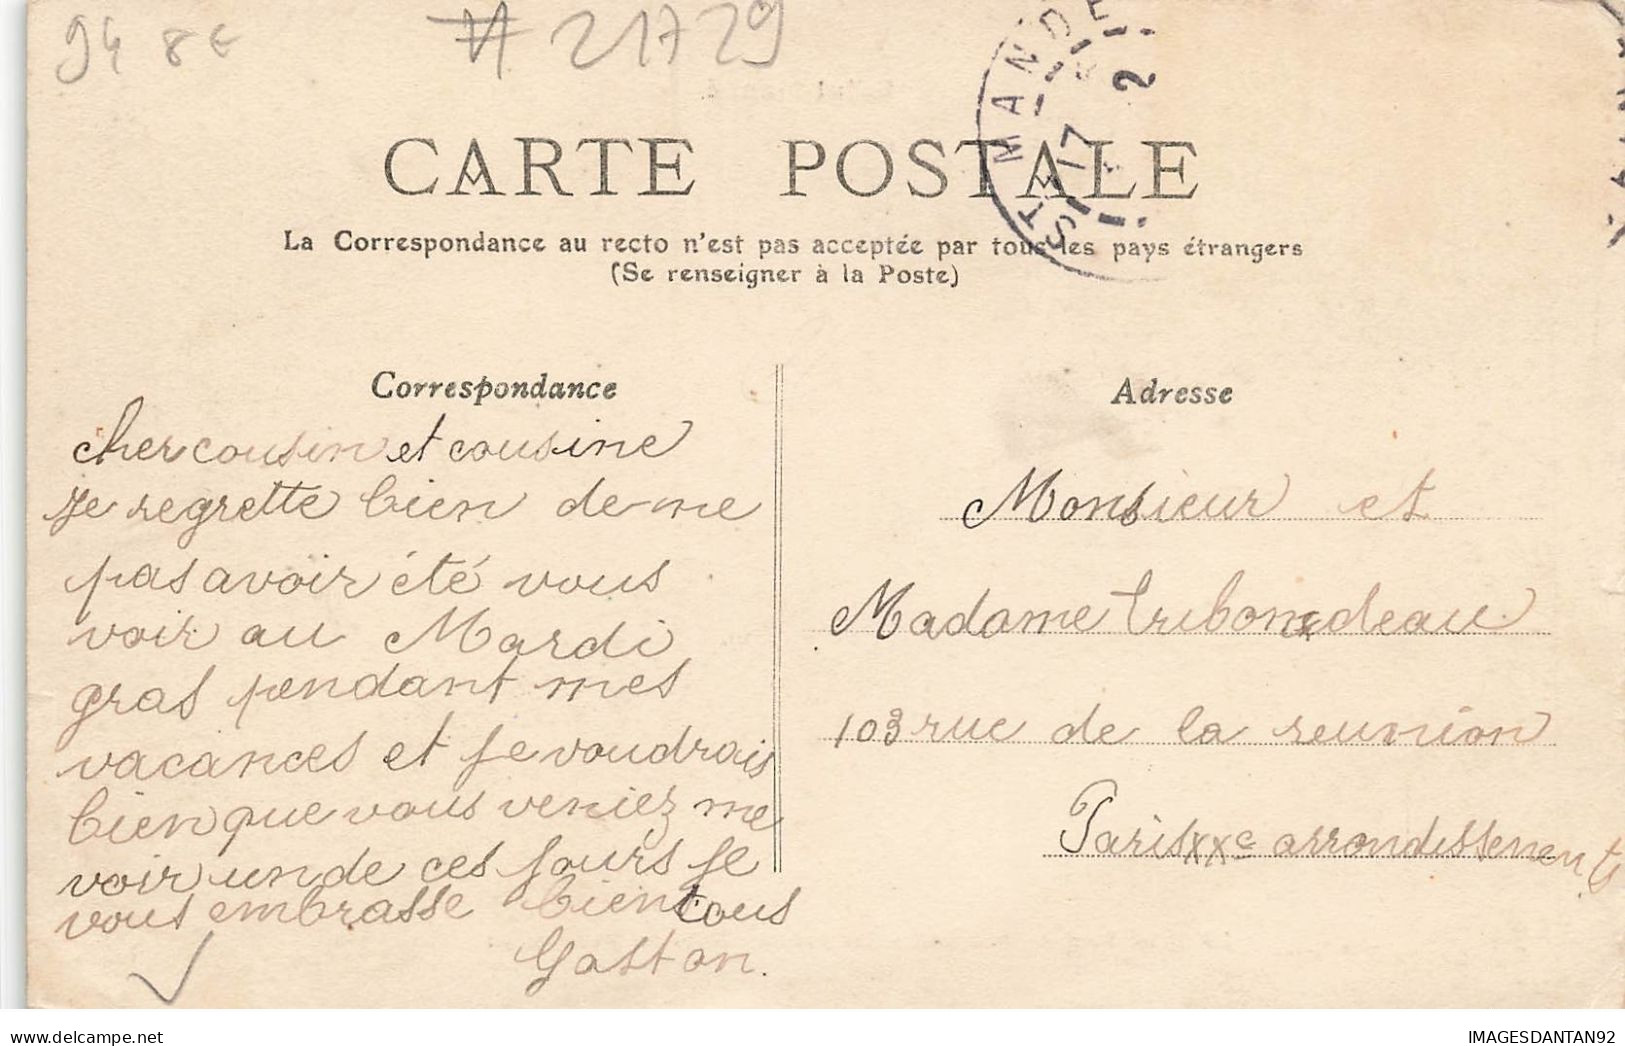 94 8€
# 21729
ST MANDÉ
17
2
CARTE POSTALE
La Correspondance au recto n'est pas acceptée par tous les pays étrangers
(Se renseigner à la Poste)
Correspondance
cher cousin et cousine
Je regrette bien de me
pas avoir été vous
voir au Mardi
gras pendant mes
vacances et je voudrais
bien que vous veniez me
voir un de ces jours je
vous embrasse bien tous
Gaston.
Adresse
Monsieur et
Madame Tribondeau
103 rue de la reunion
Paris XXe arrondissement
delcampe.net
IMAGESDANTAN92